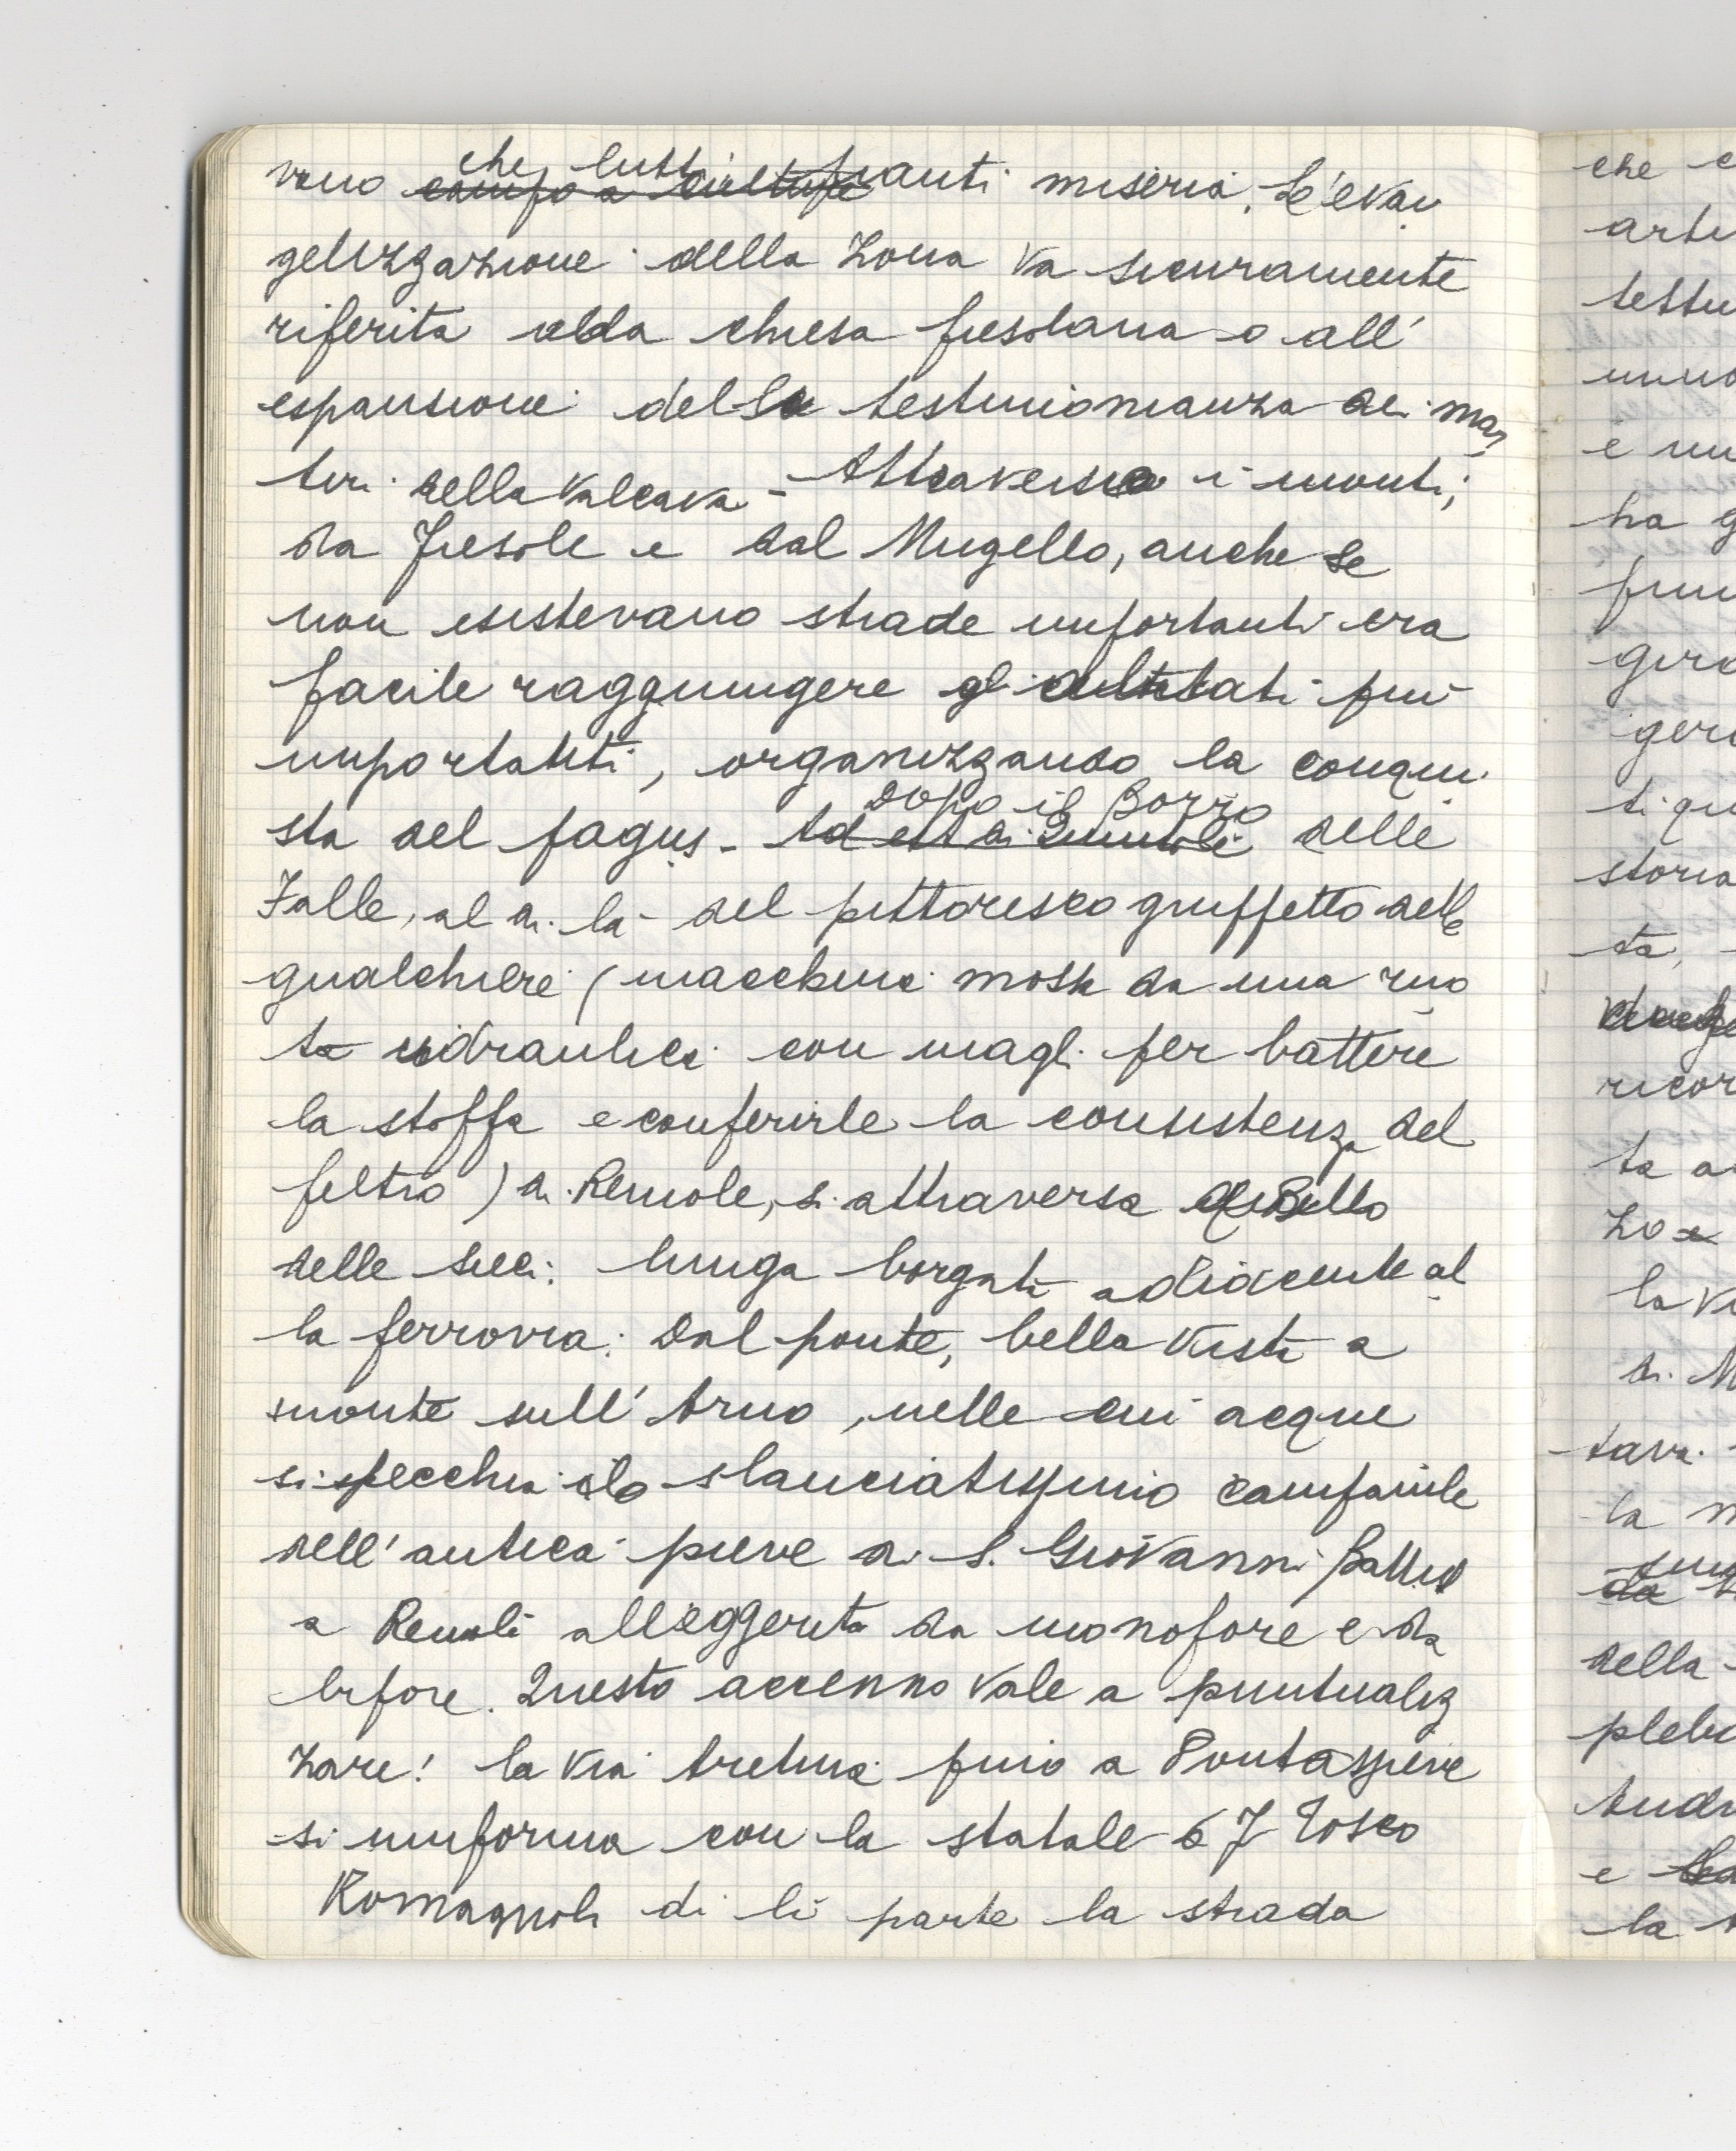 vano che, lutti, pianti miseria. L'evan
gelizzazione della zona va sicuramente
riferita alla chiesa fiesolana o all'
espansione della testimonianza dei mar
tiri della Valcava - Attraverso i monti,
da Fiesole e dal Mugello, anche se
non esistevano strade importanti era
facile raggiungere gli abitati più
importanti, organizzando la conqui
sta del pagus - Dopo il Borro delle
Falle, al di là del pittoresco gruppetto delle
gualchiere (macchine mosse da una ruo
ta idraulica con magli per battere
la stoffa e conferirle la consistenza del
feltro) di Remole, si attraversa
delle Sieci: lunga borgata adiacente al
la ferrovia. Dal ponte, bella vista a
monte sull'Arno, nelle cui acque
si specchia lo slanciatissimo campanile
dell'antica pieve di S. Giovanni Battist
a Remoli alleggerita da monofore e da
bifore. Questo accenno vale a puntualiz
zare! la via Aretina fino a Pontassieve
si uniforma con la statale 67 Tosco
Romagnola di lì parte la strada
che
arti
tettu
e
ha
giro
ti qu
storia
ta,
ricor
ta
zo
la
di M
la
della
pleb
e
la